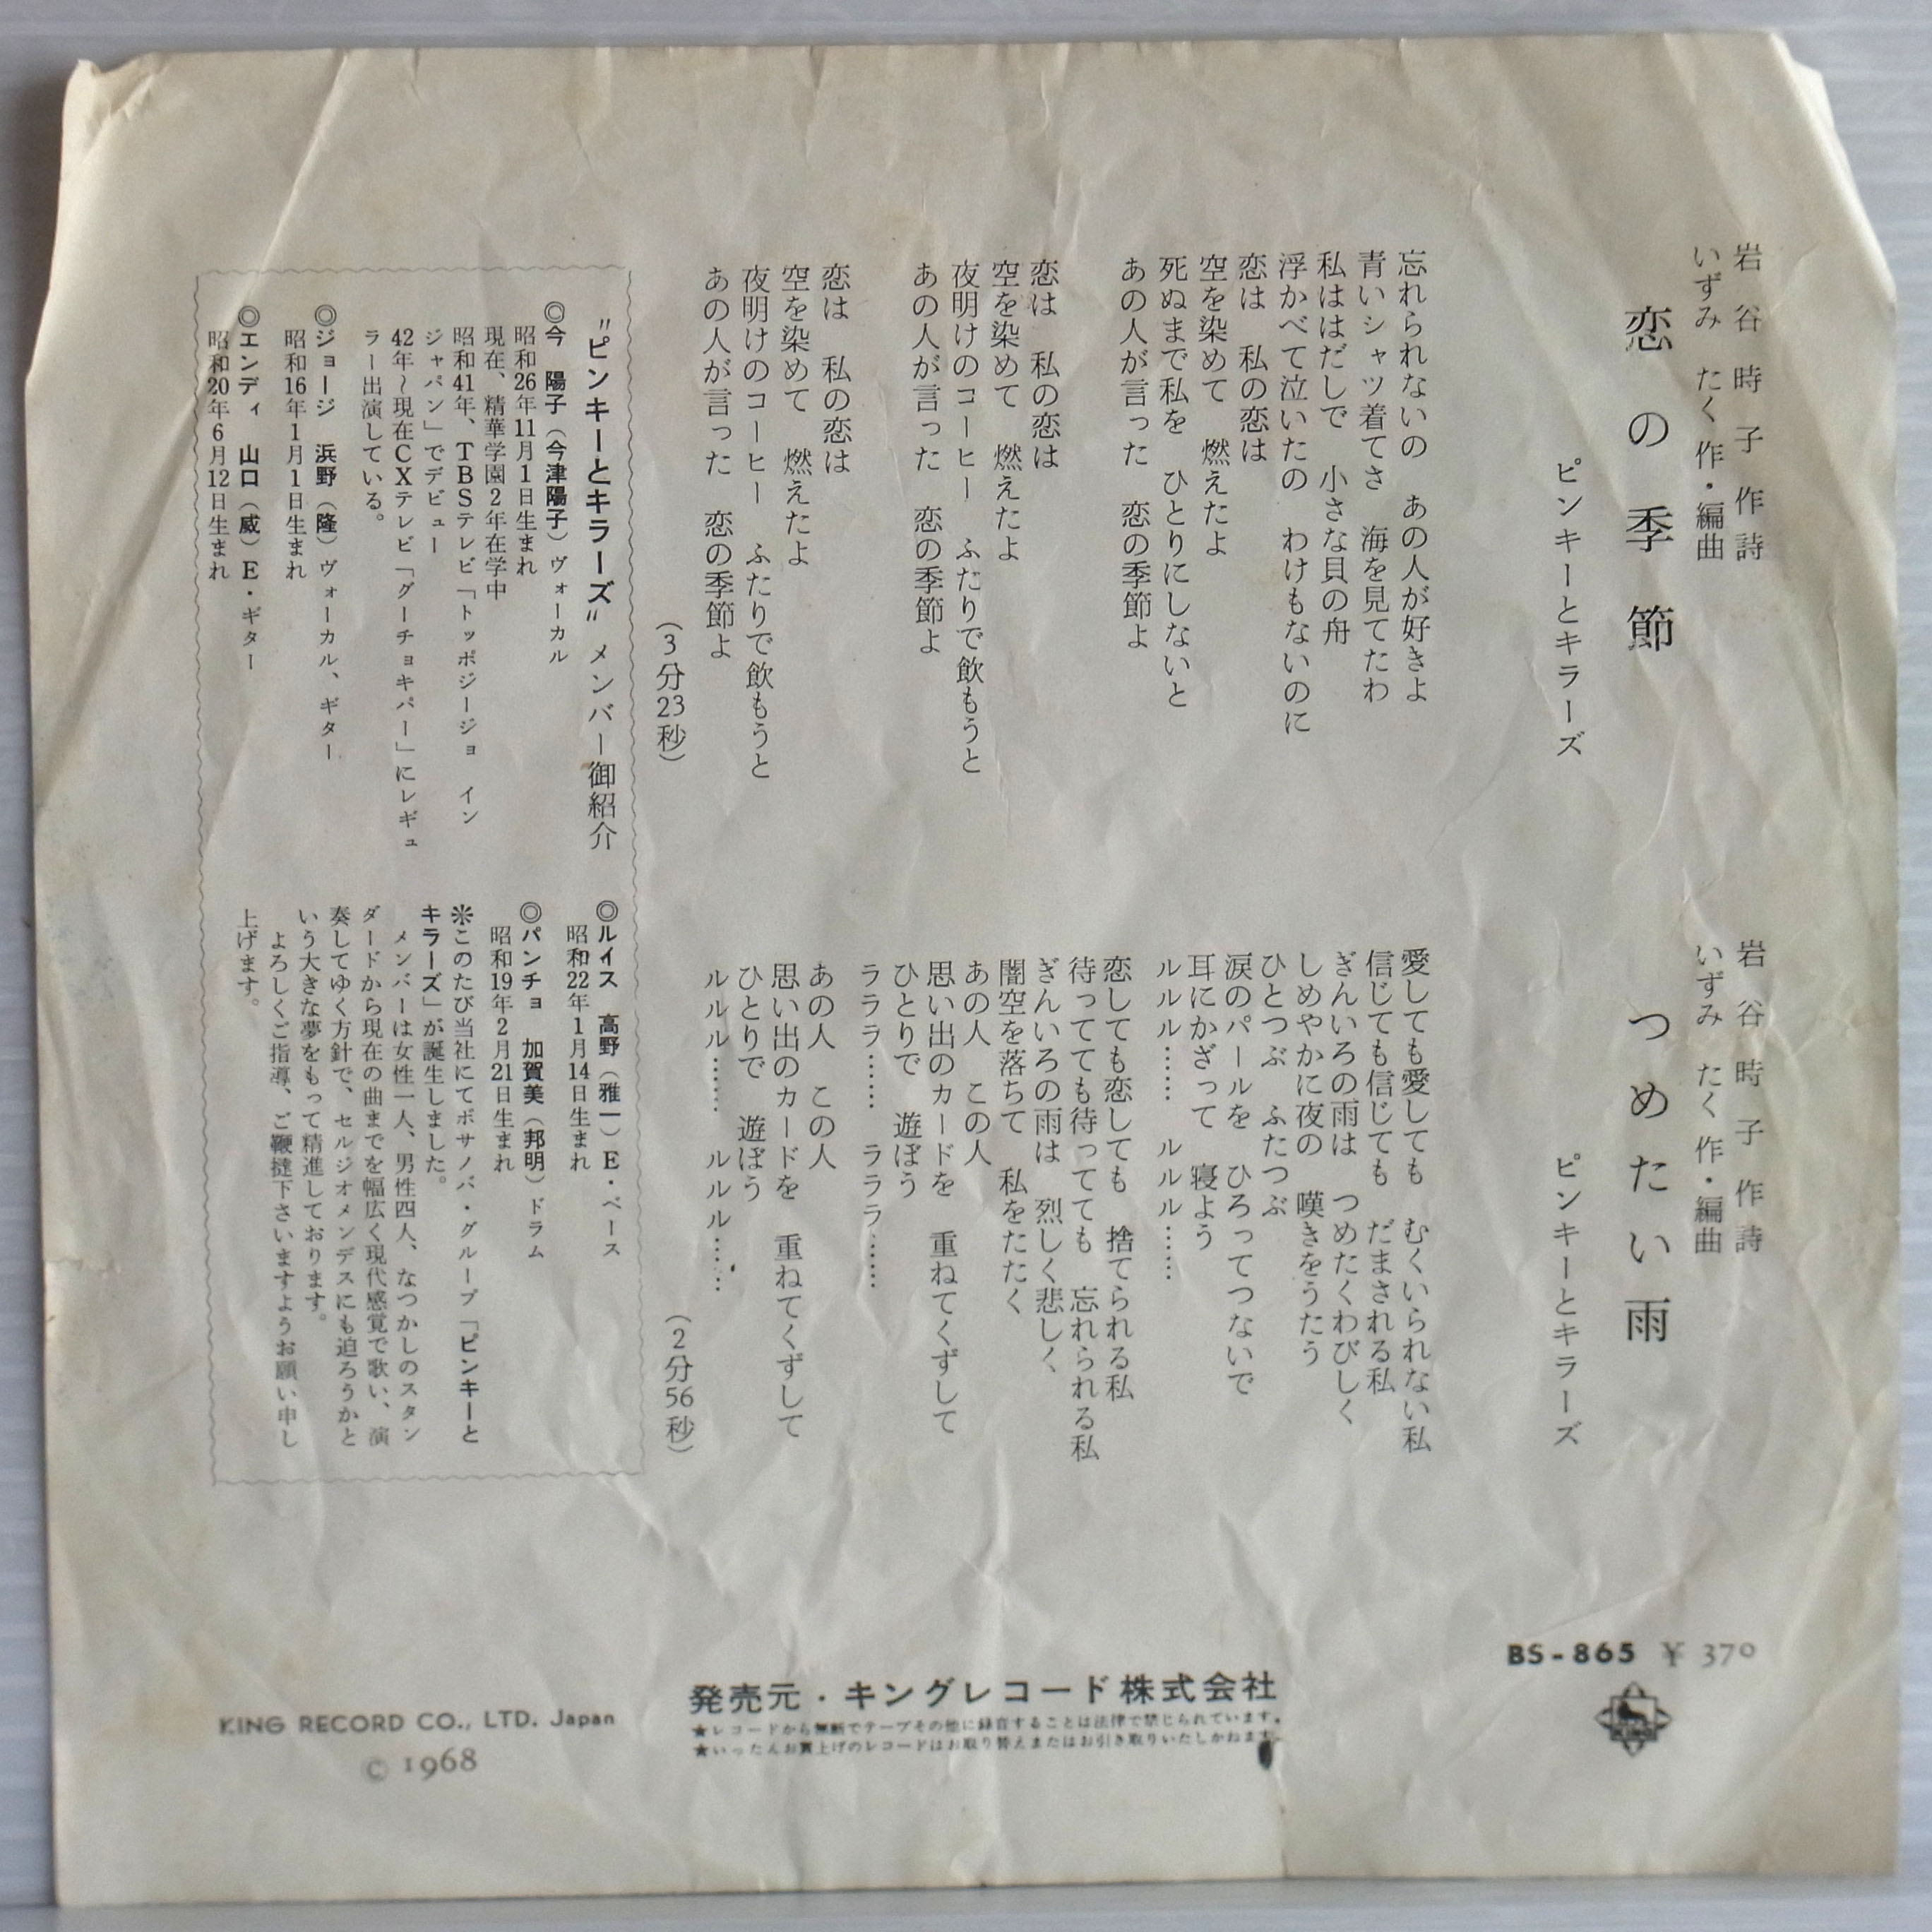 岩谷時子 作詩
いずみ たく 作・編曲
恋の季節
ピンキーとキラーズ
忘れられないの あの人が好きよ
青いシャツ着てさ 海を見てたわ
私ははだしで 小さな貝の舟
浮かべて泣いたの わけもないのに
恋は 私の恋は
空を染めて 燃えたよ
死ぬまで私を ひとりにしないと
あの人が言った 恋の季節よ
恋は 私の恋は
空を染めて 燃えたよ
夜明けのコーヒー ふたりで飲もうと
あの人が言った 恋の季節よ
恋は 私の恋は
空を染めて 燃えたよ
夜明けのコーヒー ふたりで飲もうと
あの人が言った 恋の季節よ
(3分23秒)
岩谷時子 作詩
いずみ たく 作・編曲
つめたい雨
ピンキーとキラーズ
愛しても愛しても むくいられない私
信じても信じても だまされる私
ぎんいろの雨は つめたくわびしく
しめやかに夜の 嘆きをうたう
ひとつぶ ふたつぶ
涙のパールを ひろってつないで
耳にかざって 寝よう
ルルル…… ルルル……
恋しても恋しても 捨てられる私
待ってても待ってても 忘れられる私
ぎんいろの雨は 烈しく悲しく
闇空を落ちて 私をたたく
あの人 この人
思い出のカードを 重ねてくずして
ひとりで 遊ぼう
ラララ…… ラララ……
あの人 この人
思い出のカードを 重ねてくずして
ひとりで 遊ぼう
ルルル…… ルルル……
(2分56秒)
"ピンキーとキラーズ" メンバー御紹介
◎今 陽子(今津陽子)ヴォーカル
昭和26年11月1日生まれ
現在、精華学園2年在学中
昭和41年、TBSテレビ「トッポジージョ イン
ジャパン」でデビュー
42年〜現在CXテレビ「グーチョキパー」にレギュ
ラー出演している。
◎ジョージ 浜野(隆)ヴォーカル、ギター
昭和16年1月1日生まれ
◎エンディ 山口(威)E・ギター
昭和20年6月12日生まれ
◎ルイス 高野(雅一)E・ベース
昭和22年1月14日生まれ
◎パンチョ 加賀美(邦明)ドラム
昭和19年2月21日生まれ
※このたび当社にてボサノバ・グループ「ピンキーと
キラーズ」が誕生しました。
メンバーは女性一人、男性四人、なつかしのスタン
ダードから現在の曲までを幅広く現代感覚で歌い、演
奏してゆく方針で、セルジオメンデスにも迫ろうかと
いう大きな夢をもって精進しております。
よろしくご指導、ご鞭撻下さいますようお願い申し
上げます。
BS-865 ¥370
発売元・キングレコード株式会社
★レコードから無断でテープその他に録音することは法律で禁じられています。
★いったんお買上げのレコードはお取り替えまたはお引き取りいたしかねます。
KING RECORD CO., LTD. Japan
© 1968